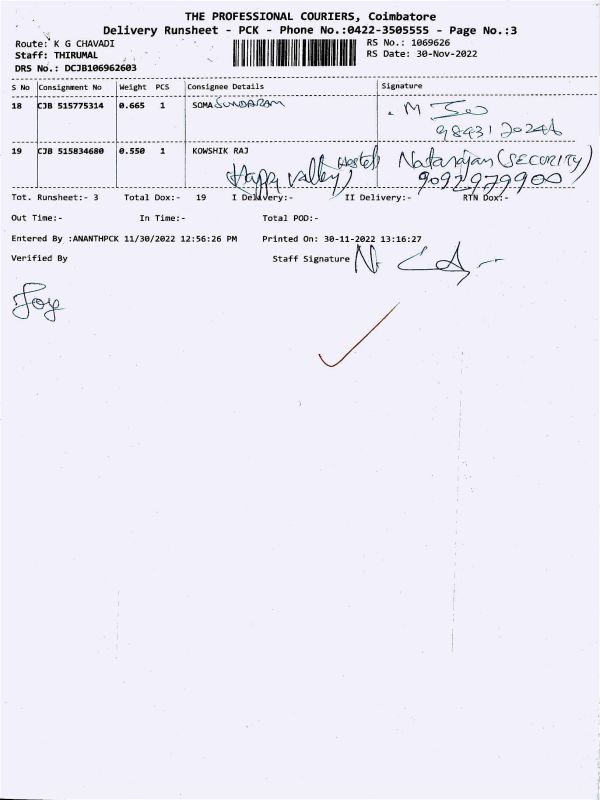 THE PROFESSIONAL COURIERS, Coimbatore
Delivery Runsheet - PCK - Phone No.:0422-3505555 - Page No.:3
Route: K G CHAVADI
RS No.: 1069626
Staff: THIRUMAL
RS Date: 30-Nov-2022
DRS No.: DCJB106962603
S No Consignment No Weight PCS Consignee Details Signature
18 CJB 515775314 0.665 1 SOMASUNDARAM
19 CJB 515834680 0.550 1 KOWSHIK RAJ Natarajan (SECURITY)
Happy valley Hostel 9092979900
Tot. Runsheet:- 3 Total Dox:- 19 I Delivery:- II Delivery:- RTN Dox:-
Out Time:- In Time:- Total POD:-
Entered By :ANANTHPCK 11/30/2022 12:56:26 PM Printed On: 30-11-2022 13:16:27
Verified By Staff Signature